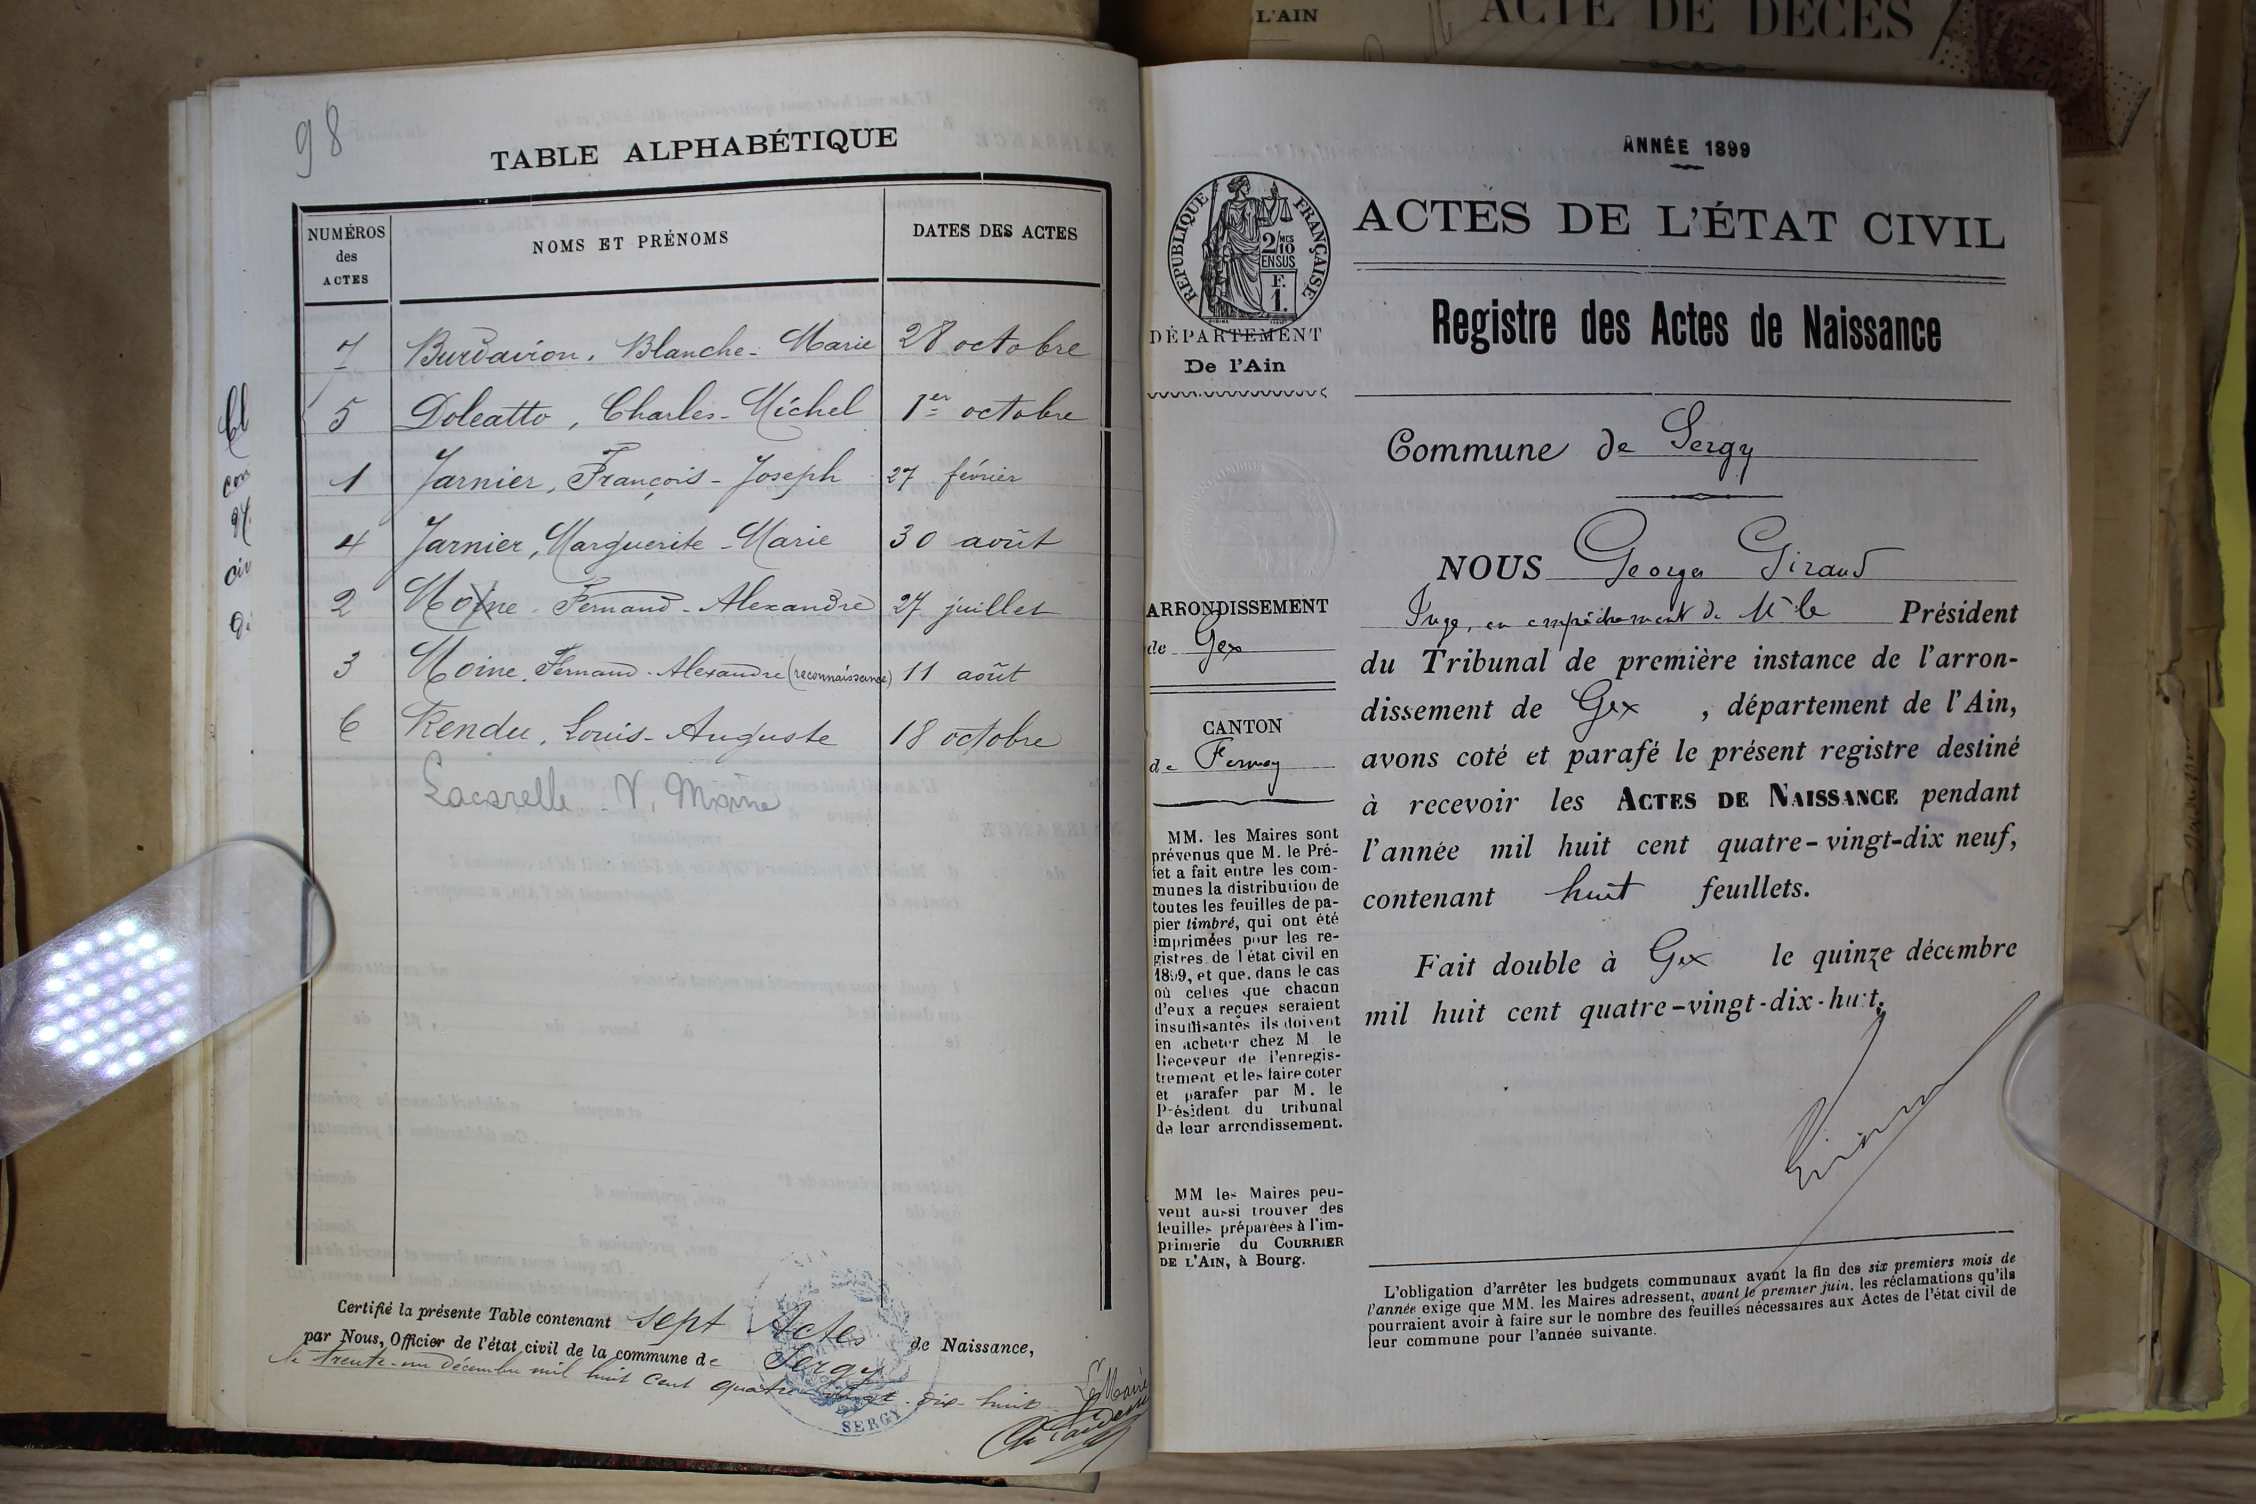 L'AIN
ACTE DE DÉCÈS
98
TABLE ALPHABÉTIQUE
NUMÉROS
des
ACTES
NOMS ET PRÉNOMS
DATES DES ACTES
7 Burdairon, Blanche-Marie 28 octobre
5 Doleatto, Charles-Michel 1er octobre
1 Jarnier, François-Joseph 27 février
4 Jarnier, Marguerite-Marie 30 août
2 Moine Fernand-Alexandre 27 juillet
3 Moine, Fernand-Alexandre (reconnaissance) 11 août
6 Rendu, Louis-Auguste 18 octobre
Lacarelle V. Moine
Certifié la présente Table contenant sept Actes de Naissance,
par Nous, Officier de l'état civil de la commune de Sergy
le trente-un décembre mil huit cent quatre vingt-dix-huit
Le Maire
SERGY
ANNÉE 1899
RÉPUBLIQUE FRANÇAISE
2/10
MES
EN SUS
F.
1.
ACTES DE L'ÉTAT CIVIL
DÉPARTEMENT
De l'Ain
Registre des Actes de Naissance
Commune de Sergy
ARRONDISSEMENT
de Gex
CANTON
de Ferney
MM. les Maires sont
prévenus que M. le Pré-
fet a fait entre les com-
munes la distribution de
toutes les feuilles de pa-
pier timbré, qui ont été
imprimées pour les re-
gistres de l'état civil en
1899, et que, dans le cas
où celles que chacun
d'eux a reçues seraient
insuffisantes ils doivent
en acheter chez M. le
Receveur de l'enregis-
trement et les faire coter
et parafer par M. le
Président du tribunal
de leur arrondissement.
MM les Maires peu-
vent aussi trouver des
feuilles préparées à l'im-
primerie du COURRIER
DE L'AIN, à Bourg.
NOUS Georges Giraud
Juge, en empêchement de Mr le Président
du Tribunal de première instance de l'arron-
dissement de Gex, département de l'Ain,
avons coté et parafé le présent registre destiné
à recevoir les ACTES DE NAISSANCE pendant
l'année mil huit cent quatre-vingt-dix neuf,
contenant huit feuillets.
Fait double à Gex le quinze décembre
mil huit cent quatre-vingt-dix-huit.
L'obligation d'arrêter les budgets communaux avant la fin des six premiers mois de
l'année exige que MM. les Maires adressent, avant le premier juin, les réclamations qu'ils
pourraient avoir à faire sur le nombre des feuilles nécessaires aux Actes de l'état civil de
leur commune pour l'année suivante.